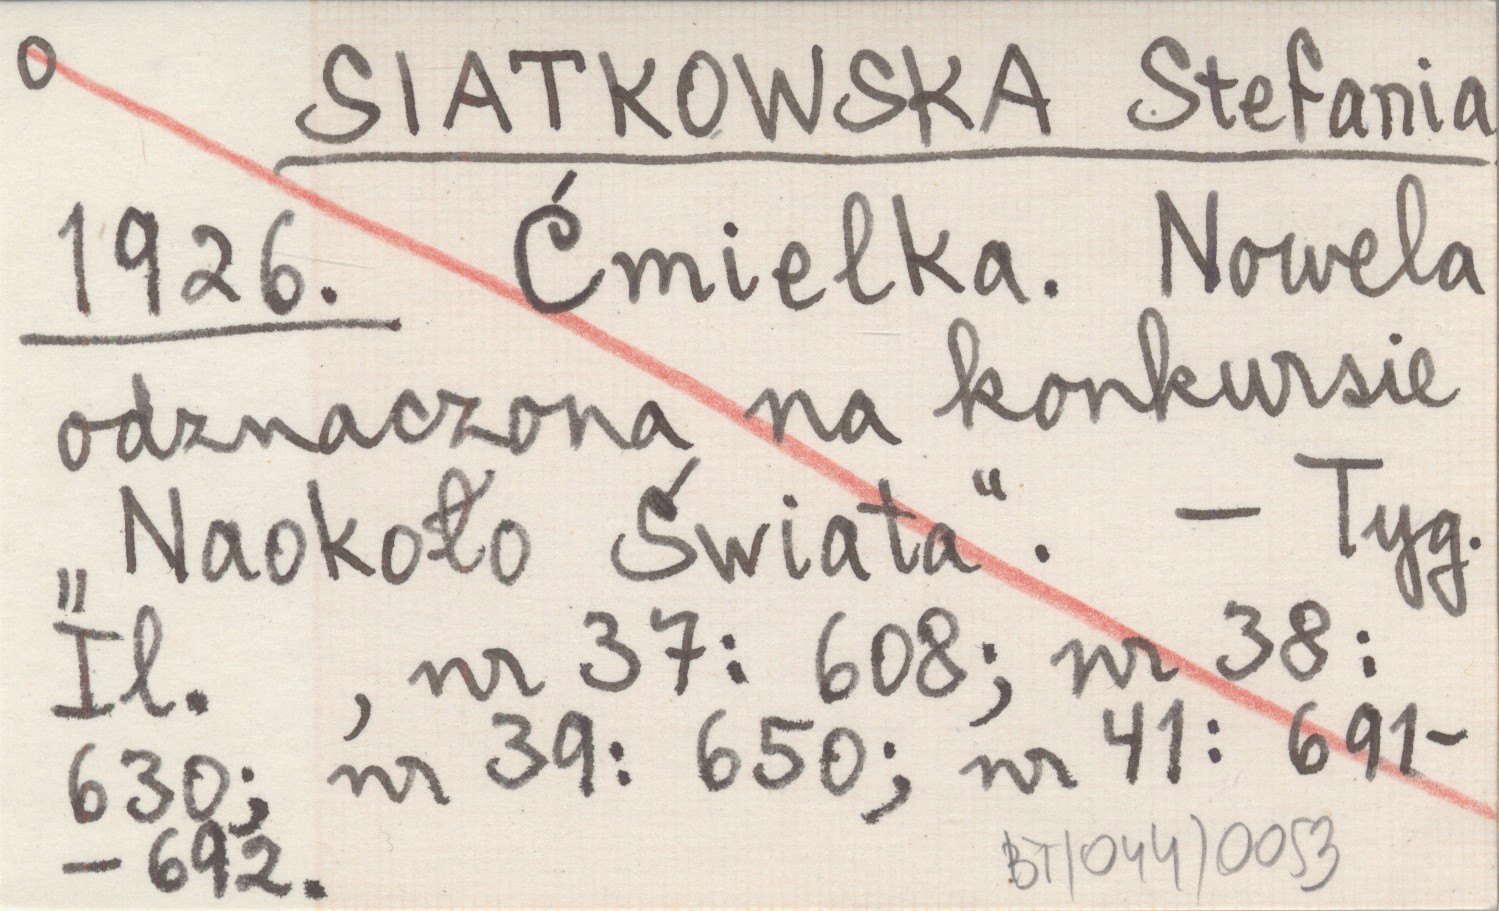 o SIATKOWSKA Stefania
1926. Ćmiełka. Nowela
odznaczona na konkursie
„Naokoło Świata“. — Tyg.
Il. , nr 37: 608; nr 38:
630; nr 39: 650; nr 41: 691-
-692.
BT/044/0053